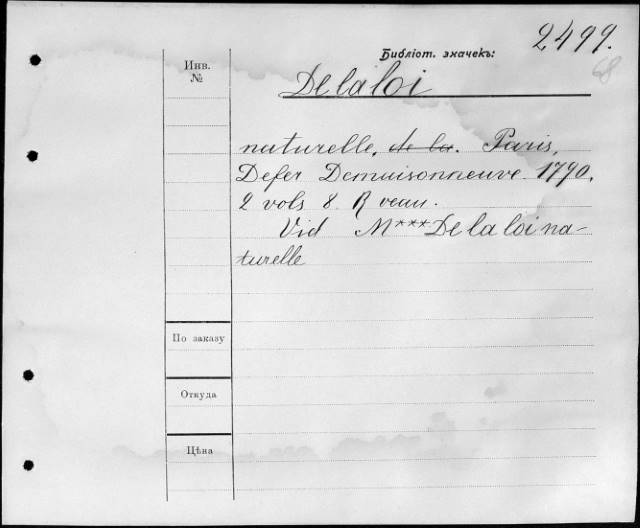 2499.
68
Библiот. значекъ:
Инв.
№
De la loi
naturelle, de la. Paris,
Defer Demaisonneuve 1790.
2 vols 8. R veau.
Vid M*** De la loi na-
turelle
По заказу
Откуда
Цѣна